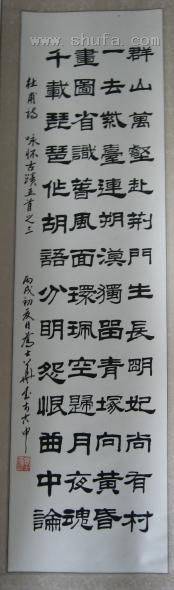 www.shufa.com
群山萬壑赴荊門生長明妃尚有村
一去紫臺連朔漠獨留青塚向黃昏
畫圖省識春風面環珮空歸月夜魂
千載琵琶作胡語分明怨恨曲中論
杜甫詩 咏怀古蹟五首之三
丙戌初夏日